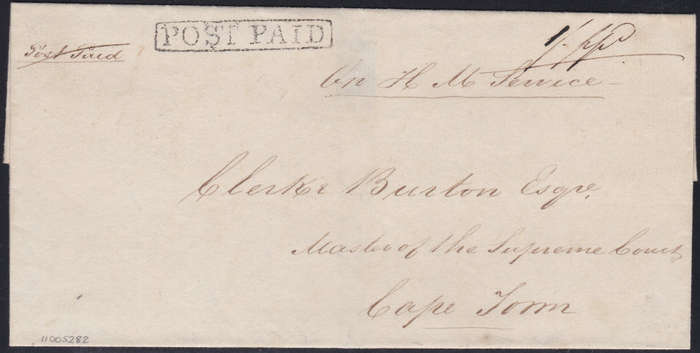 POST PAID
Post Paid
On H M Service
Clerke Burton Esqre
Master of the Supreme Court
Cape Town
11005282